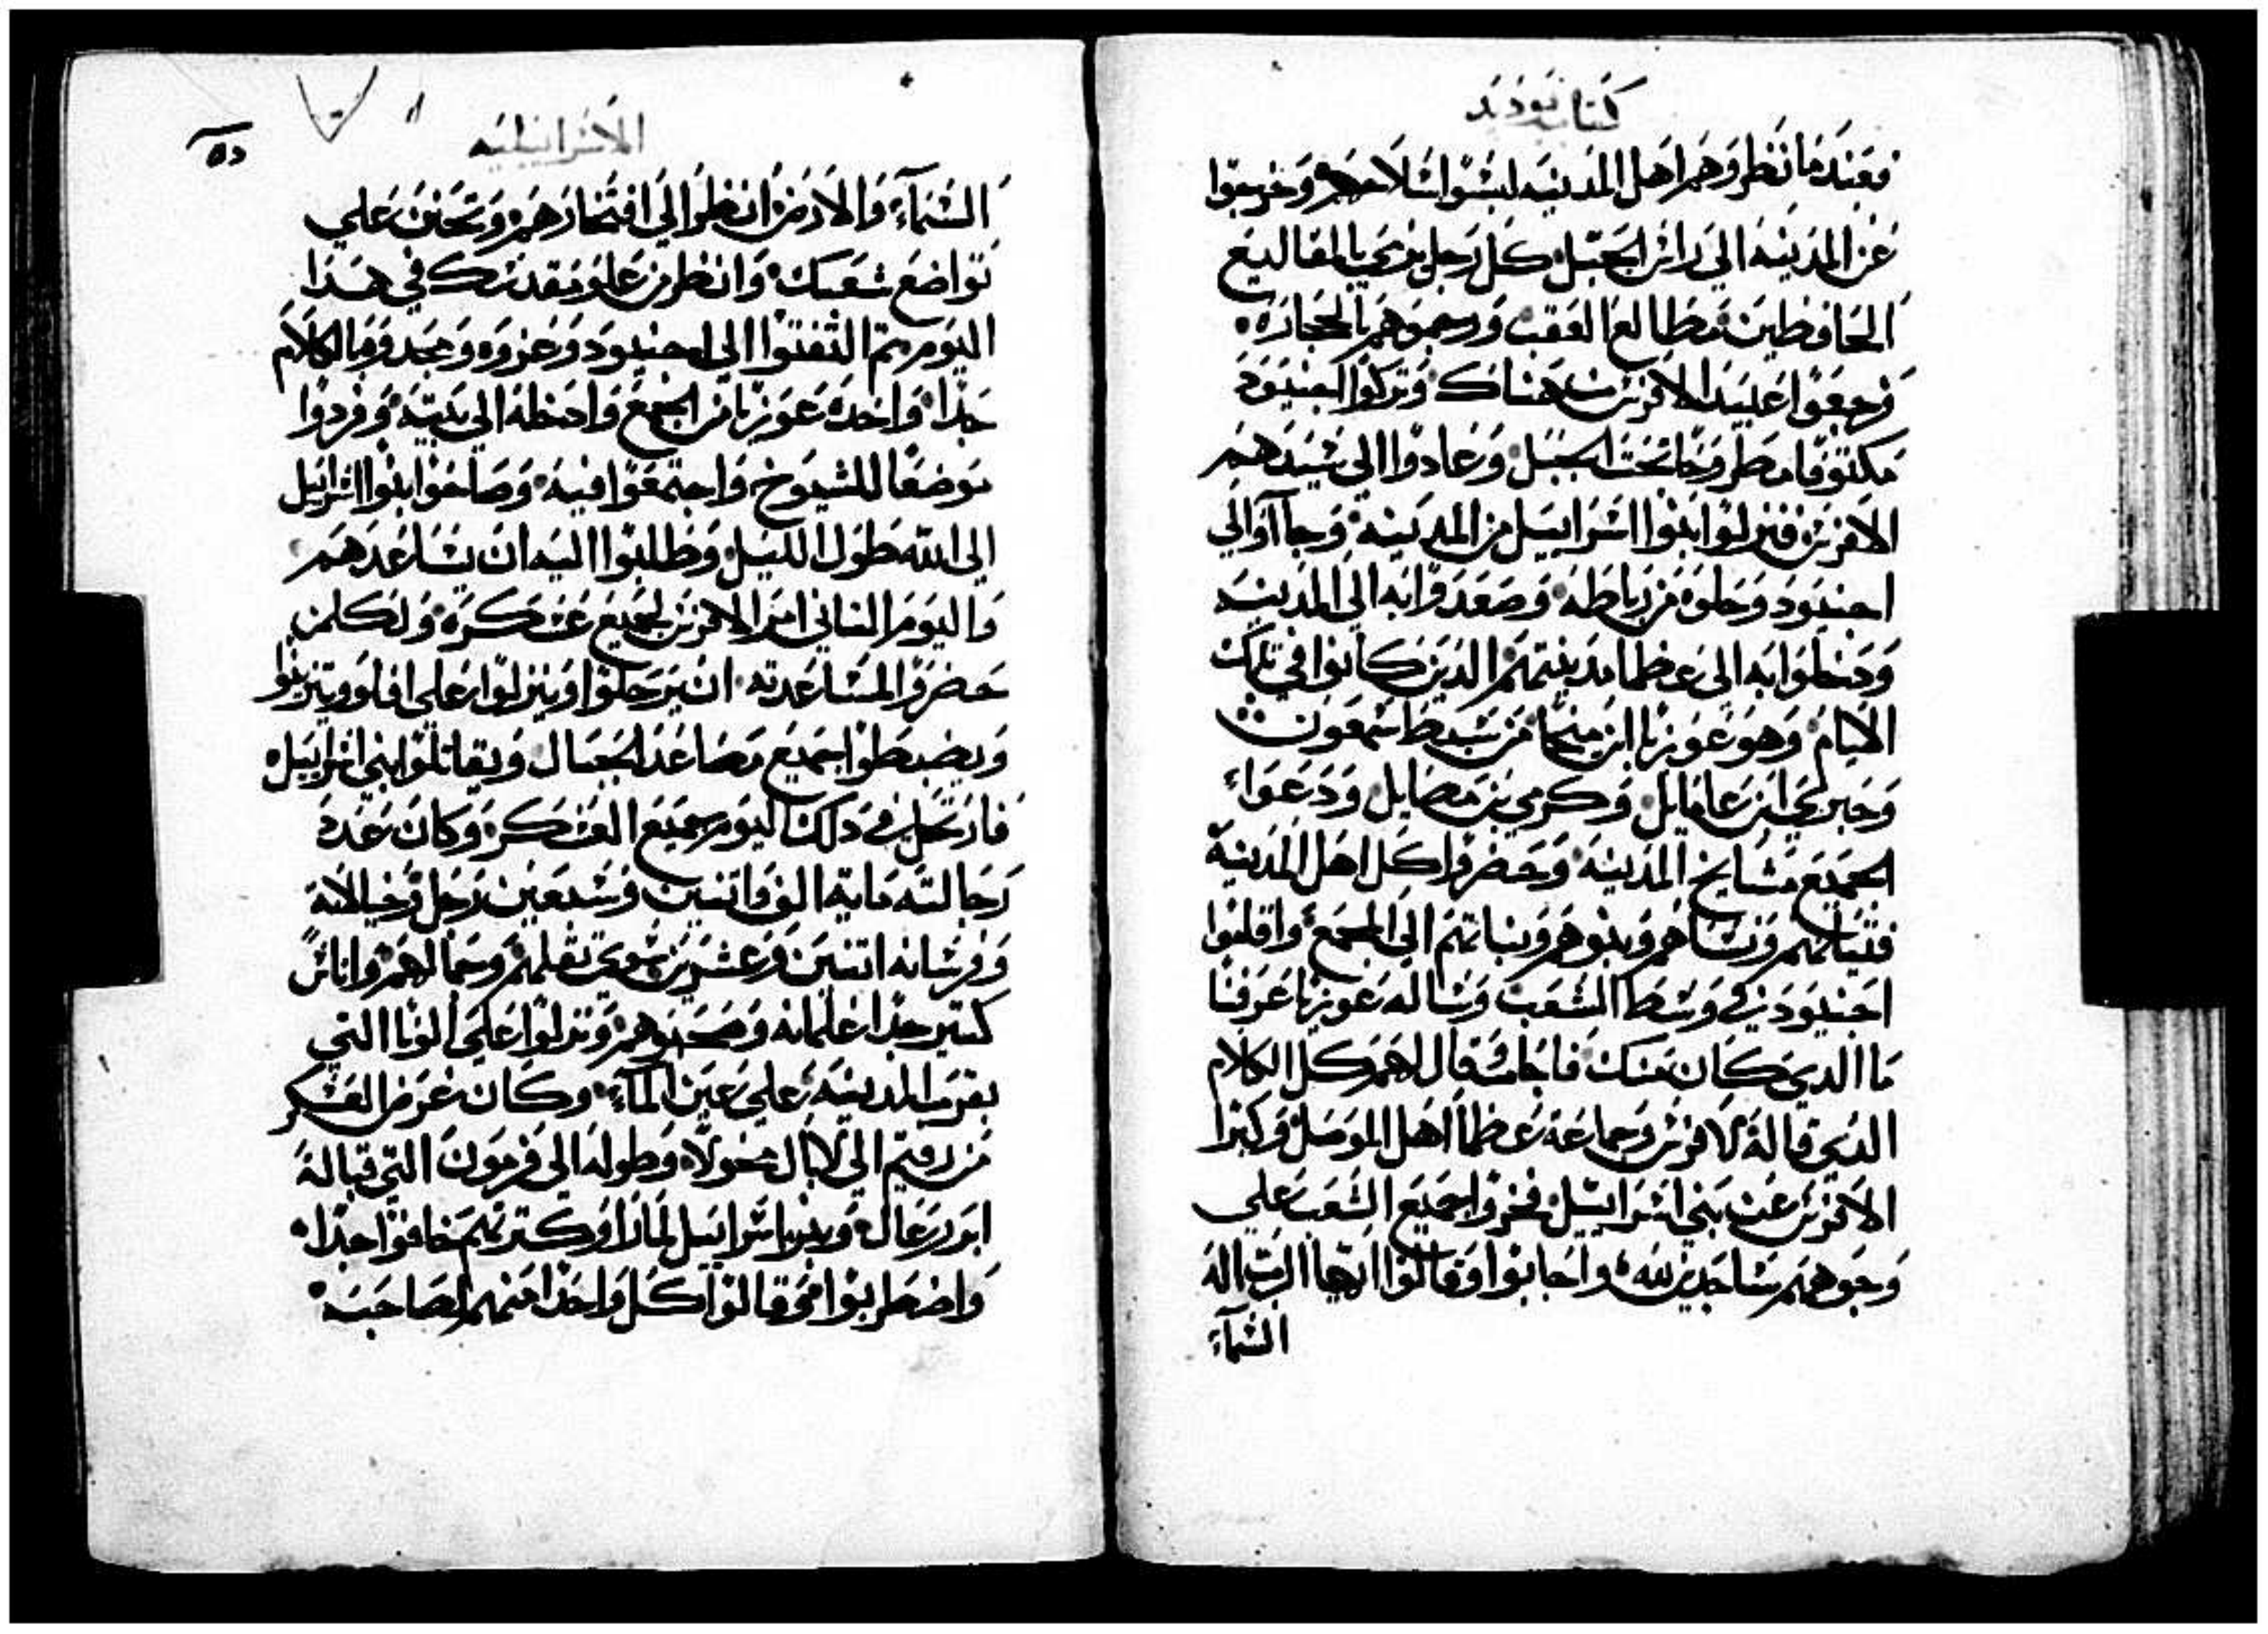 كتاب يوديد
فعندما نظروهم اهل المدينه لبسوا سلاحهم وخرجوا
عن المدينه الي راس الجبل كل رجل يرمي بالمقاليع
الحافظين مطالع العقب ورجموهم بالحجاره
ورجعوا عبيد الافرنس هناك وتركوا اجنيود
مكتوفا مطروحا تحت الجبل وعادوا الي سيدهم
الافرنس فنزلوا ابنوا اسرابيل من المدينه وجاآوا الي
اجنيود وحلوه من رباطه وصعدوا به الي المدينه
ودخلوا به الي عظما مدينتهم الذين كانوا في تلك
الايام وهو عوزيا ابن ميخا من سبط سمعون
وخبري ابن عامايل وكرمي بن مصايل ودعواء
الجميع مشايخ المدينه وحضروا كل اهل المدينة
فتيانهم ونساهم وبنوهم وبناتهم الي المجمع واقلبوا
اجنيود في وسط الشعب وساله عوزيا عرفنا
ما الدي كان منك فاجاب قال لهم كل الكلام
الدي قالة لافرنس وجماعة عظما اهل الموصل وكبرا
الافرنس عن بني اسراييل فخروا جميع الشعب علي
وجوههم ساجدين لله واجابوا وقالوا ايها الرب اله
السمآء
الاسراييليه
٥٥
السمآء والارض انظر الي افتخارهم وتحنن علي
تواضع شعبك وانظر من علو مقدسك في هدا
اليوم تم التفتوا الي اجنيود وعزوه ومجدوه بالكلام
جدا واخده عوزيا من المجمع وادخله الي بيته وفردوا
موضعا للشيوخ واجتمعوا فيه وصاحوا ابنوا اسراييل
الي الله طول الليل وطلبوا اليه ان يساعدهم
واليوم التاني امر الافرنس لجميع عسكره ولكلمن
حضروا لمساعدته ان يرحلوا وينزلوا علي افلوويتزيلوا
ويضبطوا جميع مصاعد الجبال ويقاتلوا بني اسراييل
فارتحل في دلك اليوم جميع العسكر وكان عدد
رجالته ماية الف واتنين وسبعين رجل وخيالاته
وفرسانه اتنين وعشرين سوي تقلهم وجمالهم واناس
كتير جدا غلمانه وصحبوهم ونزلوا علي الونا التي
بقرب المدينه علي عين المآء وكان عرض العسكر
من رقيم الي لابال محولاه وطوله الي فرمون التي قبالة
ابو درعال وبنو اسراييل لما راوا كترتهم خافوا جدا
واضطربوا وقالوا كل واحدا منهم لصاحبه